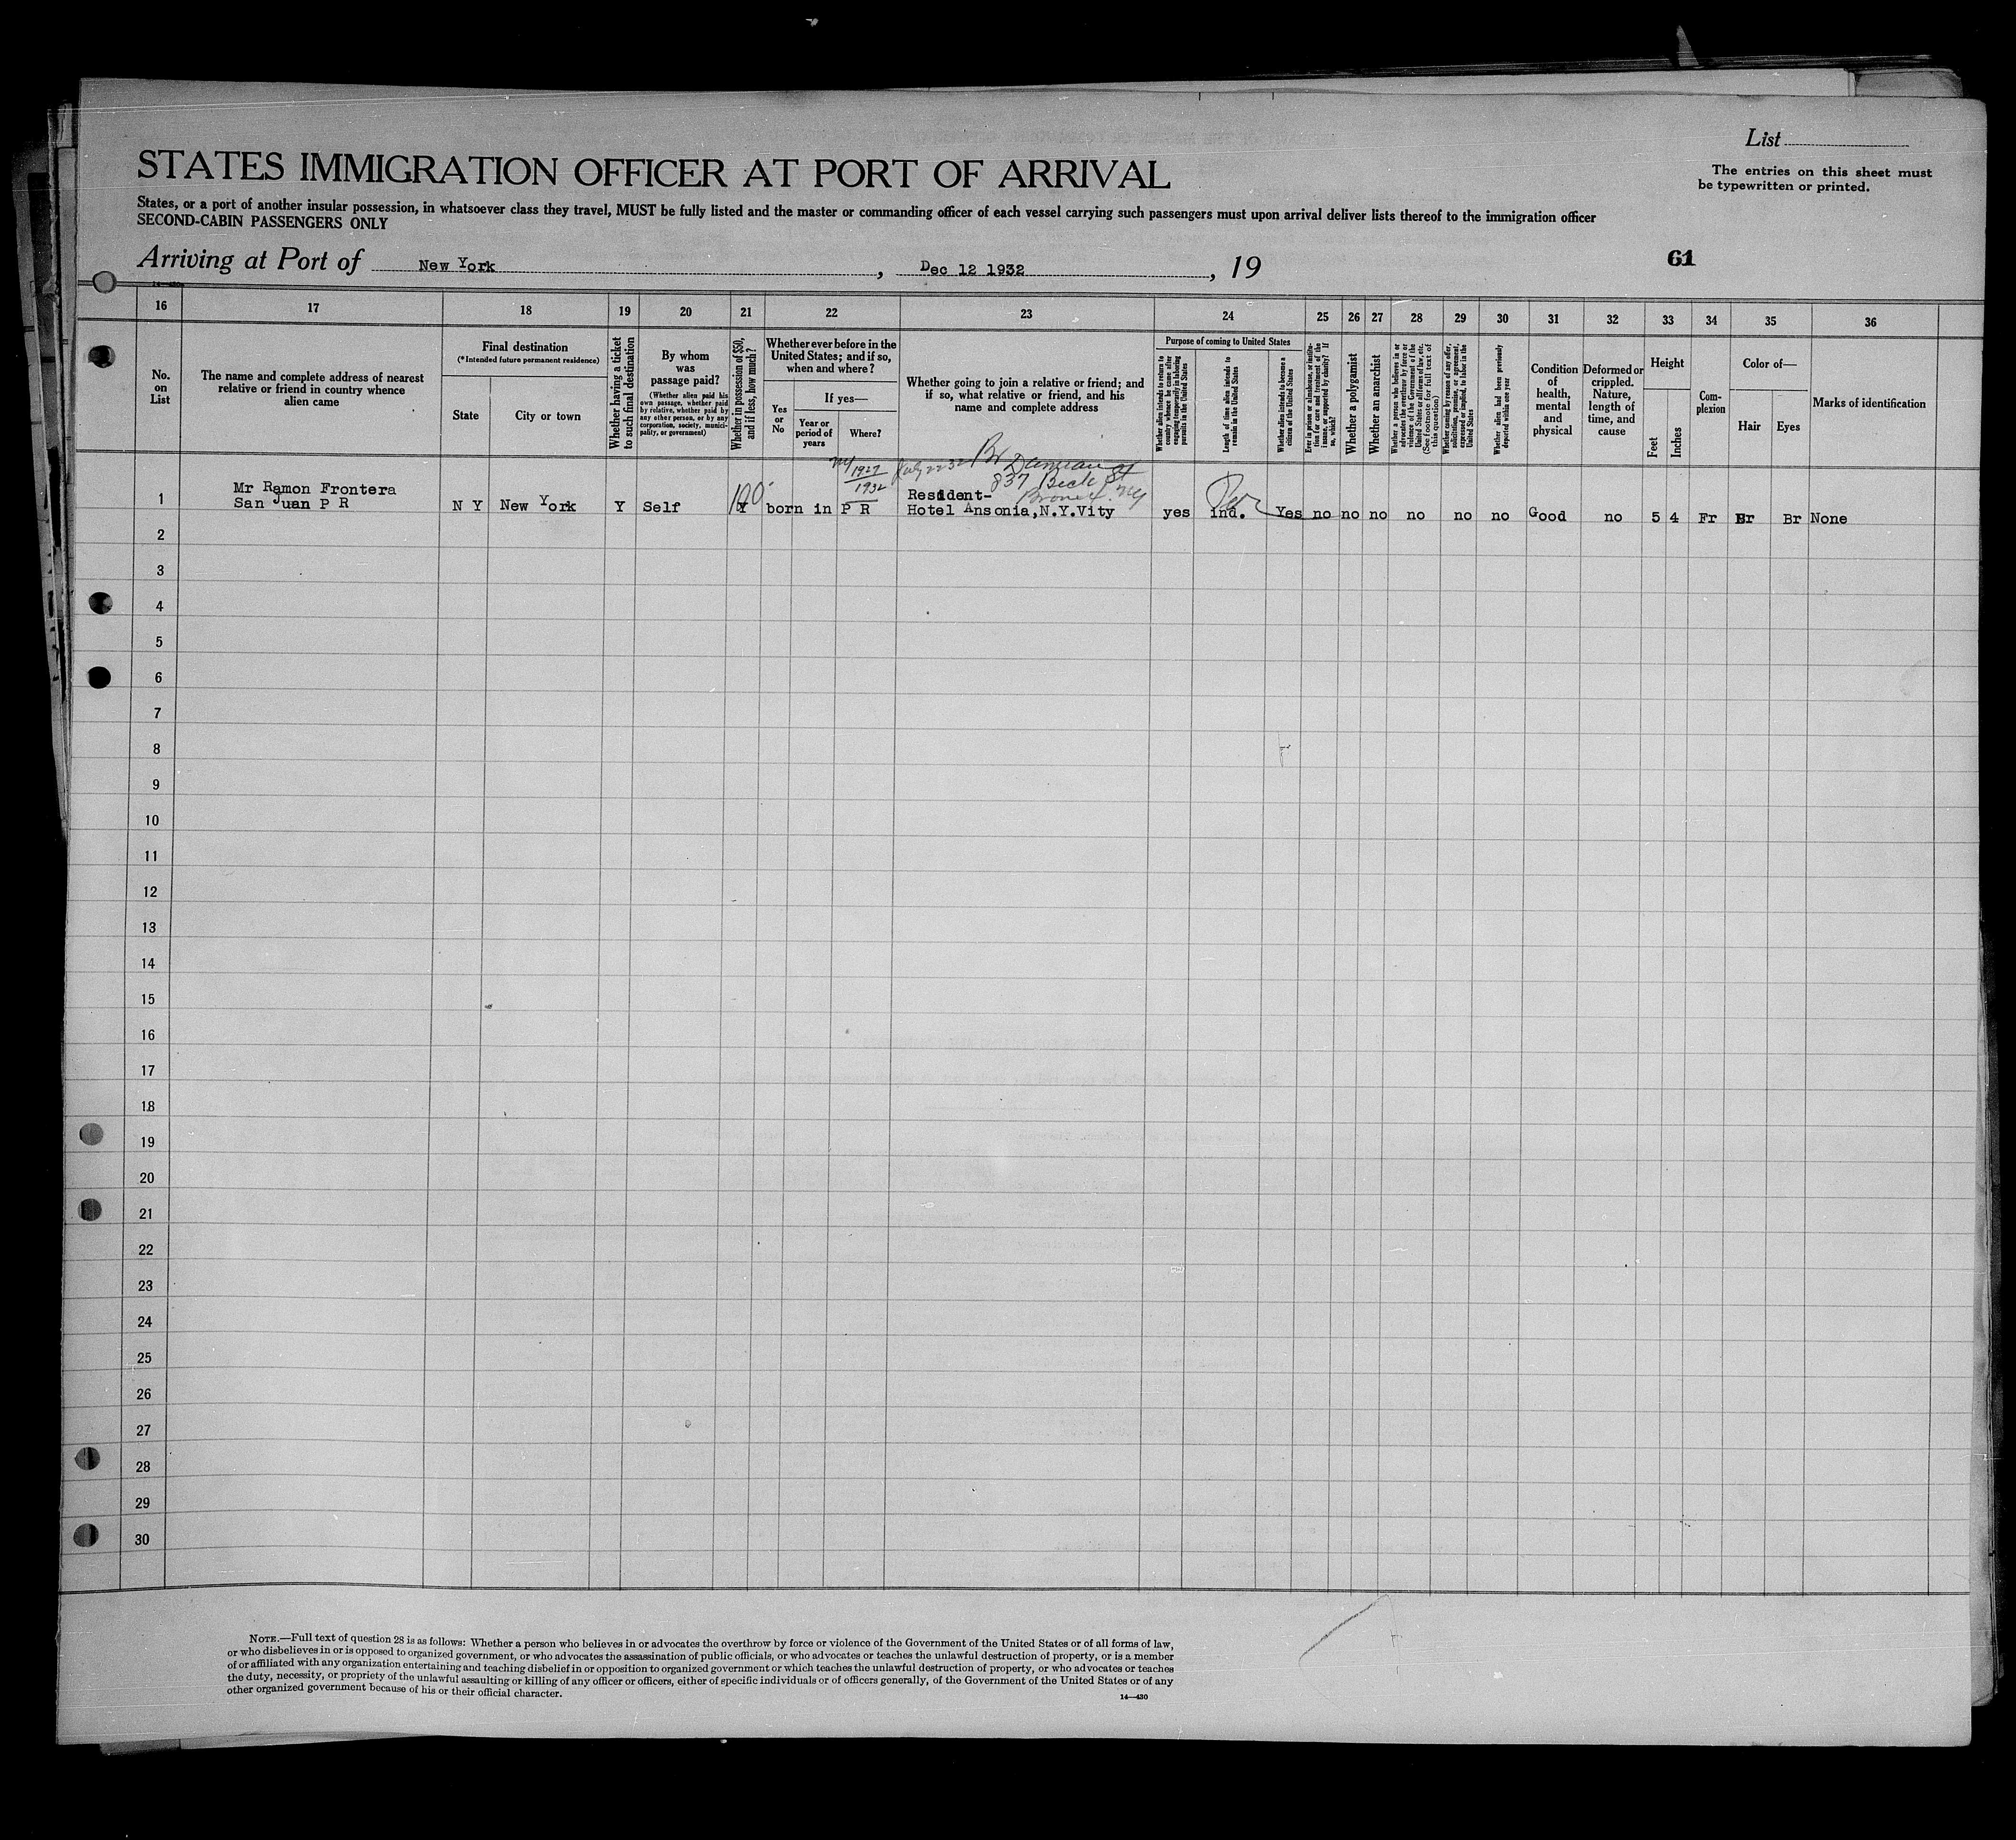 List
STATES IMMIGRATION OFFICER AT PORT OF ARRIVAL
The entries on this sheet must
be typewritten or printed.
States, or a port of another insular possession, in whatsoever class they travel, MUST be fully listed and the master or commanding officer of each vessel carrying such passengers must upon arrival deliver lists thereof to the immigration officer
SECOND-CABIN PASSENGERS ONLY
Arriving at Port of New York, Dec 12 1932, 19
61
16 17 18 19 20 21 22 23 24 25 26 27 28 29 30 31 32 33 34 35 36
No.
on
List
The name and complete address of nearest
relative or friend in country whence
alien came
Final destination
(*Intended future permanent residence)
State
City or town
Whether having a ticket
to such final destination
By whom
was
passage paid?
(Whether alien paid his
own passage, whether paid
by relative, whether paid by
any other person, or by any
corporation, society, munici-
pality, or government)
Whether in possession of $50,
and if less, how much?
Whether ever before in the
United States; and if so,
when and where?
Yes
or
No
If yes—
Year or
period of
years
Where?
Whether going to join a relative or friend; and
if so, what relative or friend, and his
name and complete address
Purpose of coming to United States
Whether alien intends to return to
country whence he came after
engaging temporarily in laboring
pursuits in the United States
Length of time alien intends to
remain in the United States
Whether alien intends to become a
citizen of the United States
Ever in prison or almshouse, or institu-
tion for care and treatment of the
insane, or supported by charity? If
so, which?
Whether a polygamist
Whether an anarchist
Whether a person who believes in or
advocates the overthrow by force or
violence of the Government of the
United States or all forms of law, etc.
(See footnote for full text of
this question)
Whether coming by reason of any offer,
solicitation, promise, or agreement,
expressed or implied, to labor in the
United States
Whether alien had been previously
deported within one year
Condition
of
health,
mental
and
physical
Deformed or
crippled.
Nature,
length of
time, and
cause
Height
Feet
Inches
Com-
plexion
Color of—
Hair
Eyes
Marks of identification
NY 1927 July 22 32 Br
1932 837 Beck St
Bronx NY
1 Mr Ramon Frontera
San Juan P R
N Y New York Y Self Y 100 born in P R
Resident-
Hotel Ansonia,N.Y.Vity
yes ind. Per Yes no no no no no no Good no 5 4 Fr Br Br None
2
3
4
5
6
7
8
9
10
11
12
13
14
15
16
17
18
19
20
21
22
23
24
25
26
27
28
29
30
NOTE.—Full text of question 28 is as follows: Whether a person who believes in or advocates the overthrow by force or violence of the Government of the United States or of all forms of law,
or who disbelieves in or is opposed to organized government, or who advocates the assassination of public officials, or who advocates or teaches the unlawful destruction of property, or is a member
of or affiliated with any organization entertaining and teaching disbelief in or opposition to organized government or which teaches the unlawful destruction of property, or who advocates or teaches
the duty, necessity, or propriety of the unlawful assaulting or killing of any officer or officers, either of specific individuals or of officers generally, of the Government of the United States or of any
other organized government because of his or their official character.
14—430